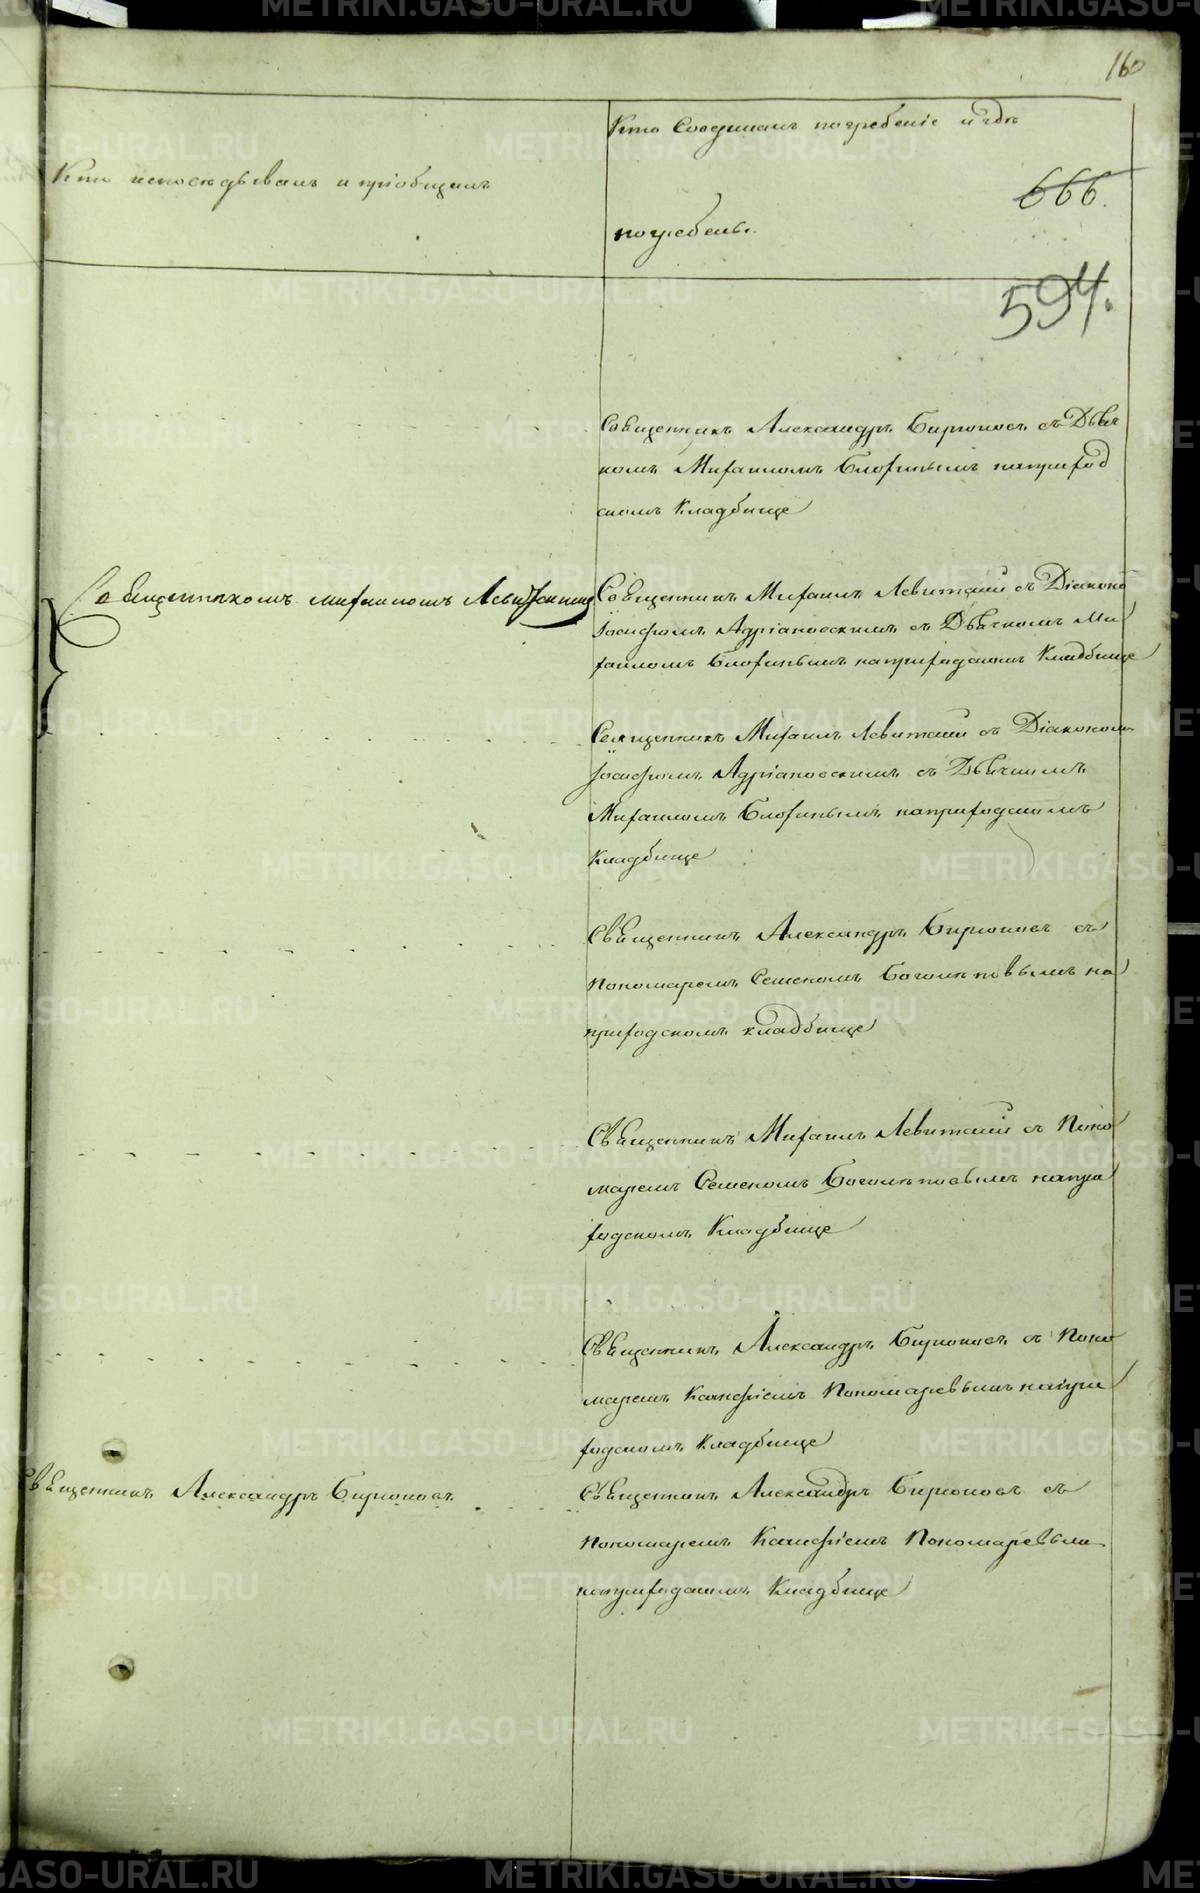 160
Кто исповѣдывалъ и пріобщалъ
Кто Совершалъ погребеніе и гдѣ
погребены.
666.
594.
Священникъ Александръ Бирюковъ съ Дьяч
комъ Михаиломъ Блохинымъ наприход
скомъ Кладбище
Священникомъ Михаиломъ Левитскимъ
Священникъ Михаилъ Левитскій съ Діакономъ
Іосифомъ Адріановскимъ съ Дьячкомъ Ми
хаиломъ Блохинымъ наприходскомъ Кладбище
Священникъ Михаилъ Левитскій съ Діакономъ
Іосифомъ Адріановскимъ съ Дьячкомъ
Михаиломъ Блохинымъ наприходскомъ
Кладбище
Священникъ Александръ Бирюковъ съ
пономаремъ Семеномъ Боголѣповымъ на
приходскомъ кладбище
Священникъ Михаилъ Левитскій съ Поно
маремъ Семеномъ Боголѣповымъ напри
ходскомъ Кладбище
Священникъ Александръ Бирюковъ съ Поно
маремъ Ксанфіемъ Пономаревымъ напри
ходскомъ Кладбище
Священникъ Александръ Бирюковъ
Священникъ Александръ Бирюковъ съ
пономаремъ Ксанфіемъ Пономаревымъ
наприходскомъ Кладбище
METRIKI.GASO-URAL.RU